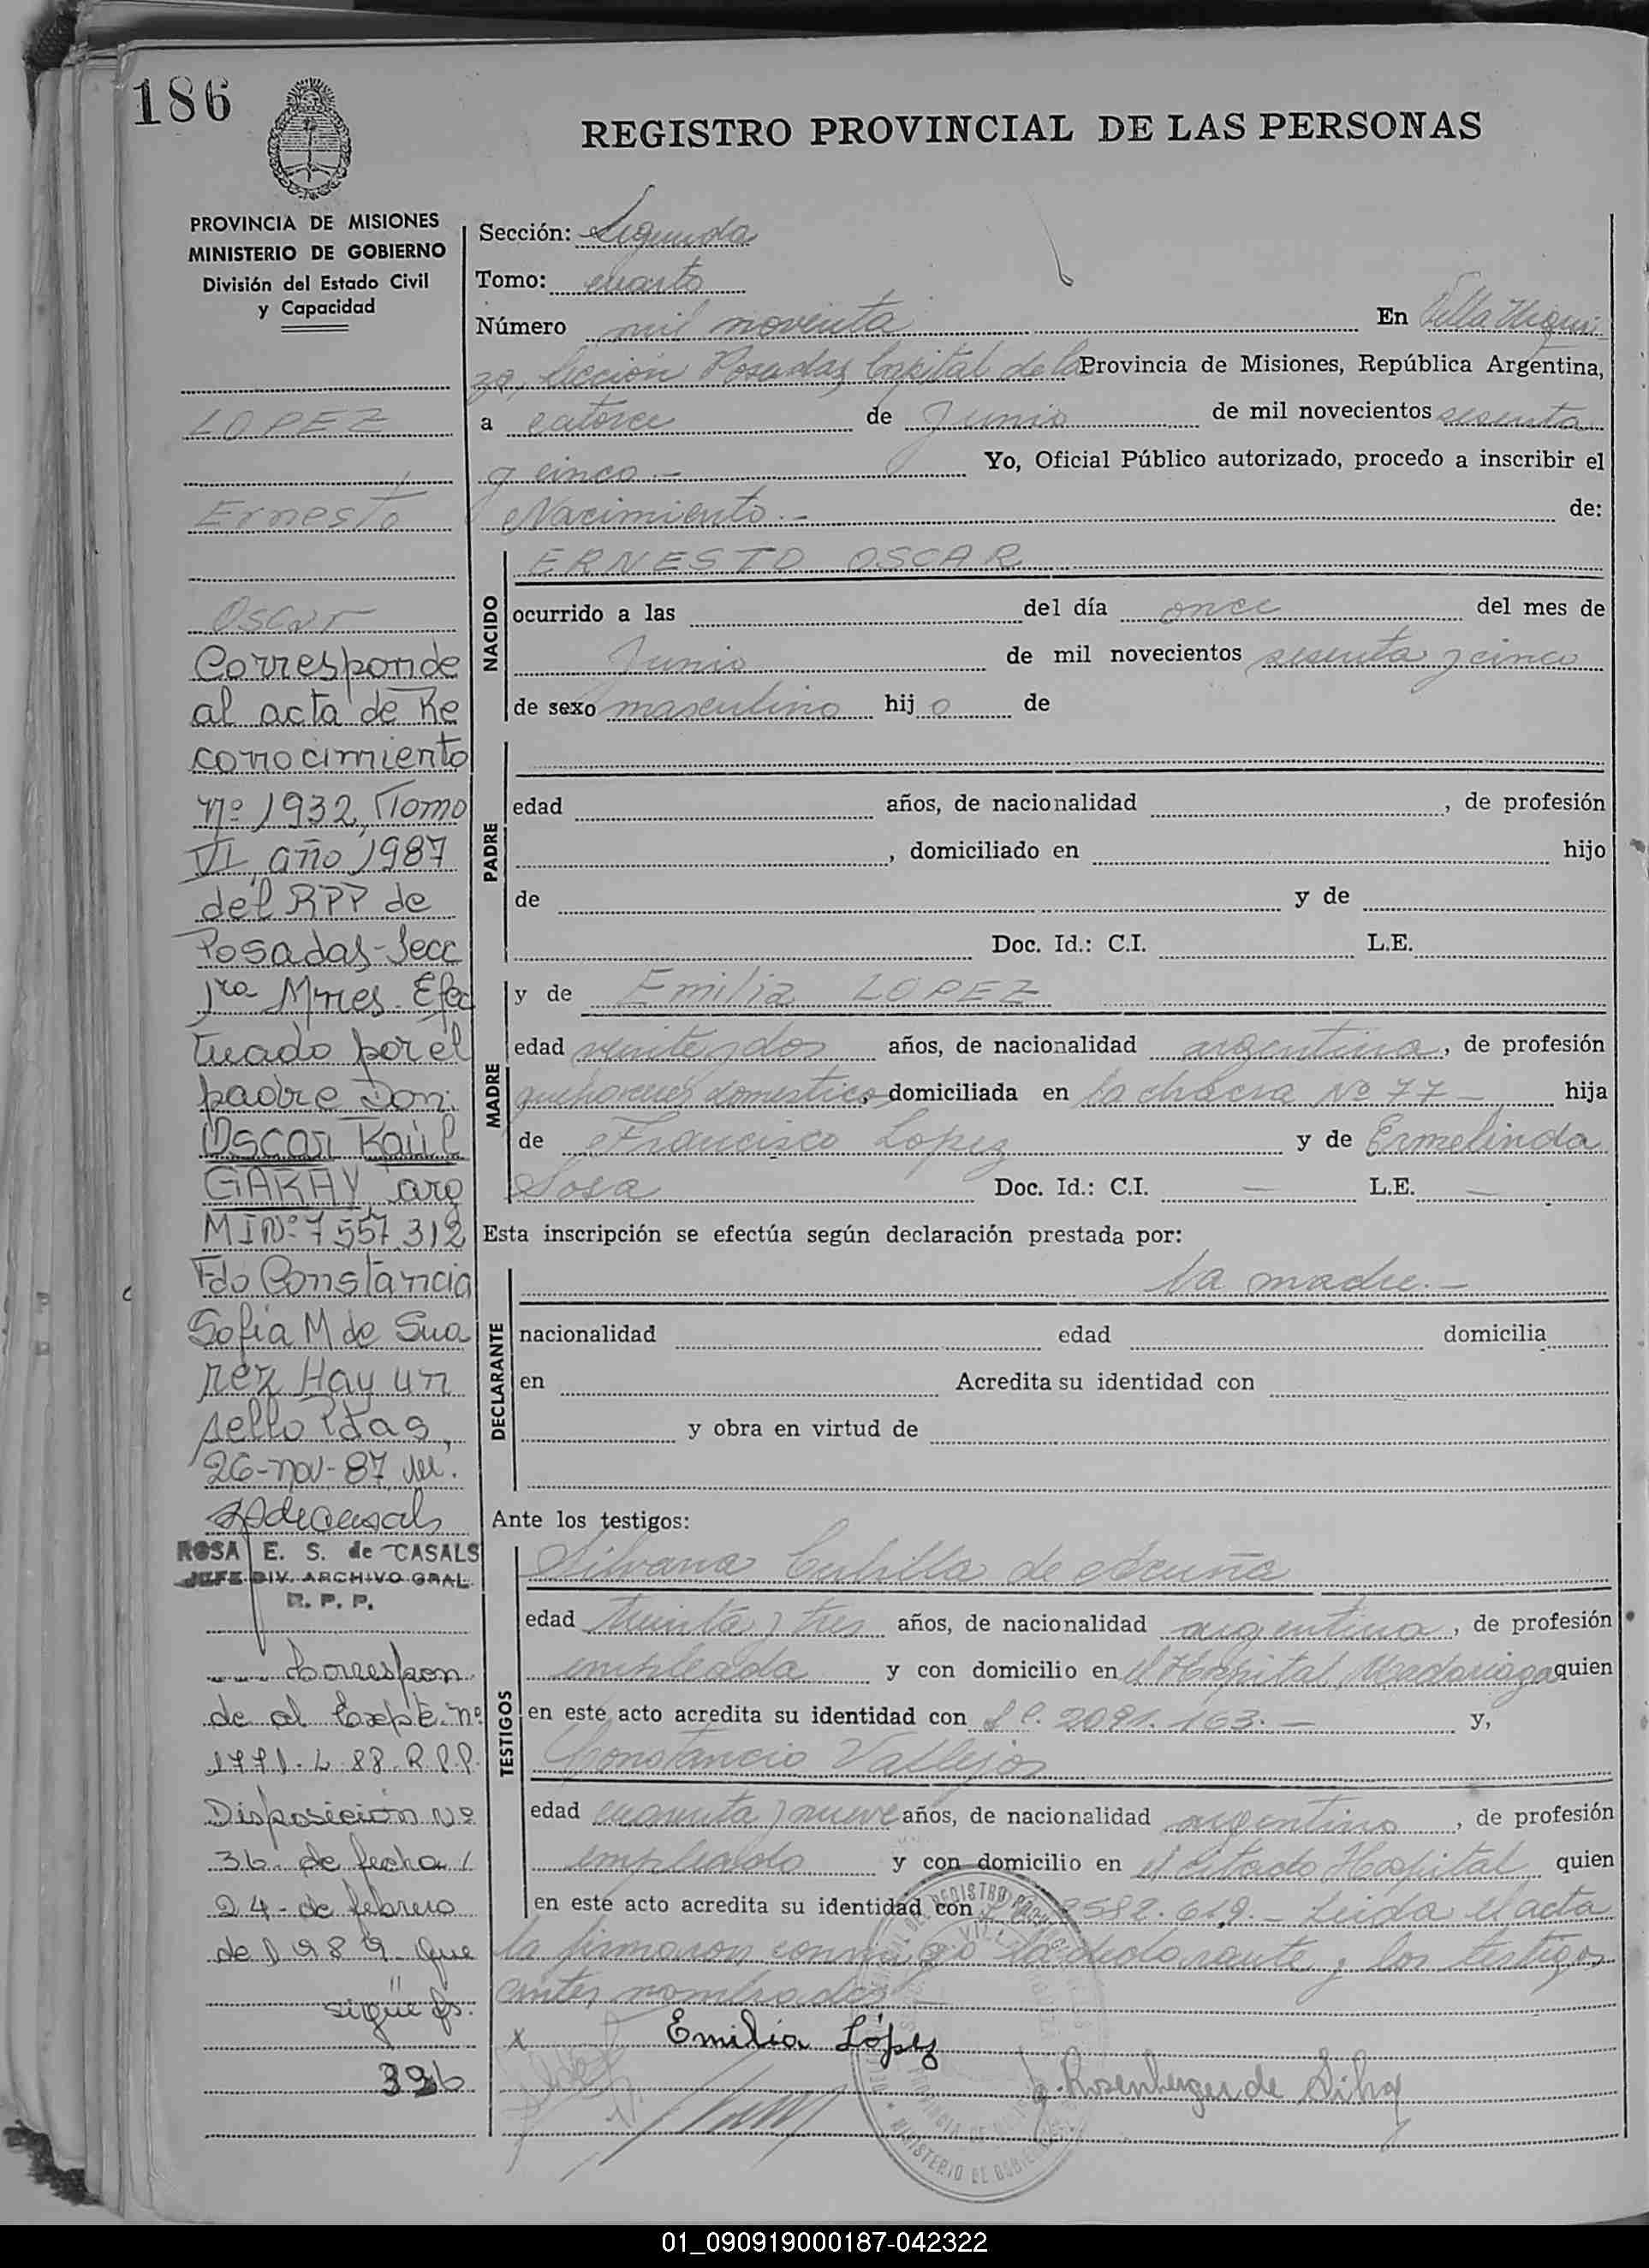 186
REGISTRO PROVINCIAL DE LAS PERSONAS
PROVINCIA DE MISIONES
MINISTERIO DE GOBIERNO
División del Estado Civil
y Capacidad
LOPEZ
Ernesto
Oscar
Corresponde
al acta de Re
conocimiento
nº 1932, Tomo
VI año 1987
del RPP de
Posadas-Secc
1ra Mnes. Efec
tuado por el
padre Don:
Oscar Raúl
GARAY arg
MINº 7 557.312
Fdo Constancia
Sofia M de Sua
rez Hay un
sello Pdas,
26-nov-87
ROSA E. S. de CASALS
JEFE DIV. ARCHIVO GRAL.
R. P. P.
Correspon
de al Expte. nº
1771-L-88-R.P.P.
Disposición Nº
36 de fecha
24 - de febrero
de 1989. que
sigüe fs.
396
Sección: Segunda
Tomo: cuarto
Número mil noventa En Villa Urqui
za, Sección Posadas Capital de la Provincia de Misiones, República Argentina,
a catorce de Junio de mil novecientos sesenta
y cinco.- Yo, Oficial Público autorizado, procedo a inscribir el
Nacimiento.- de:
NACIDO
ERNESTO OSCAR
ocurrido a las del día once del mes de
Junio de mil novecientos sesenta y cinco
de sexo masculino hij o de
PADRE
edad años, de nacionalidad , de profesión
, domiciliado en hijo
de y de
Doc. Id.: C.I. L.E.
MADRE
y de Emilia LOPEZ
edad veinte y dos años, de nacionalidad argentina, de profesión
quehaceres domesticos domiciliada en la chacra Nº 77 - hija
de Francisco Lopez y de Ermelinda
Sosa Doc. Id.: C.I. - L.E. -
Esta inscripción se efectúa según declaración prestada por:
DECLARANTE
la madre.-
nacionalidad edad domicilia
en Acredita su identidad con
y obra en virtud de
Ante los testigos:
TESTIGOS
Silvana Cubilla de Acuña
edad treinta y tres años, de nacionalidad argentina, de profesión
empleada y con domicilio en el Hospital Madariaga quien
en este acto acredita su identidad con L.C. 2091.163.- y,
Constancio Vallejos
edad cuarenta y nueve años, de nacionalidad argentino, de profesión
empleado y con domicilio en el citado Hospital quien
en este acto acredita su identidad con 2582.619.- Leida el acta
la firmaron conmigo la declarante y los testigos
antes nombrados
x Emilia López
J. Rosenberger de Silva
01_090919000187-042322